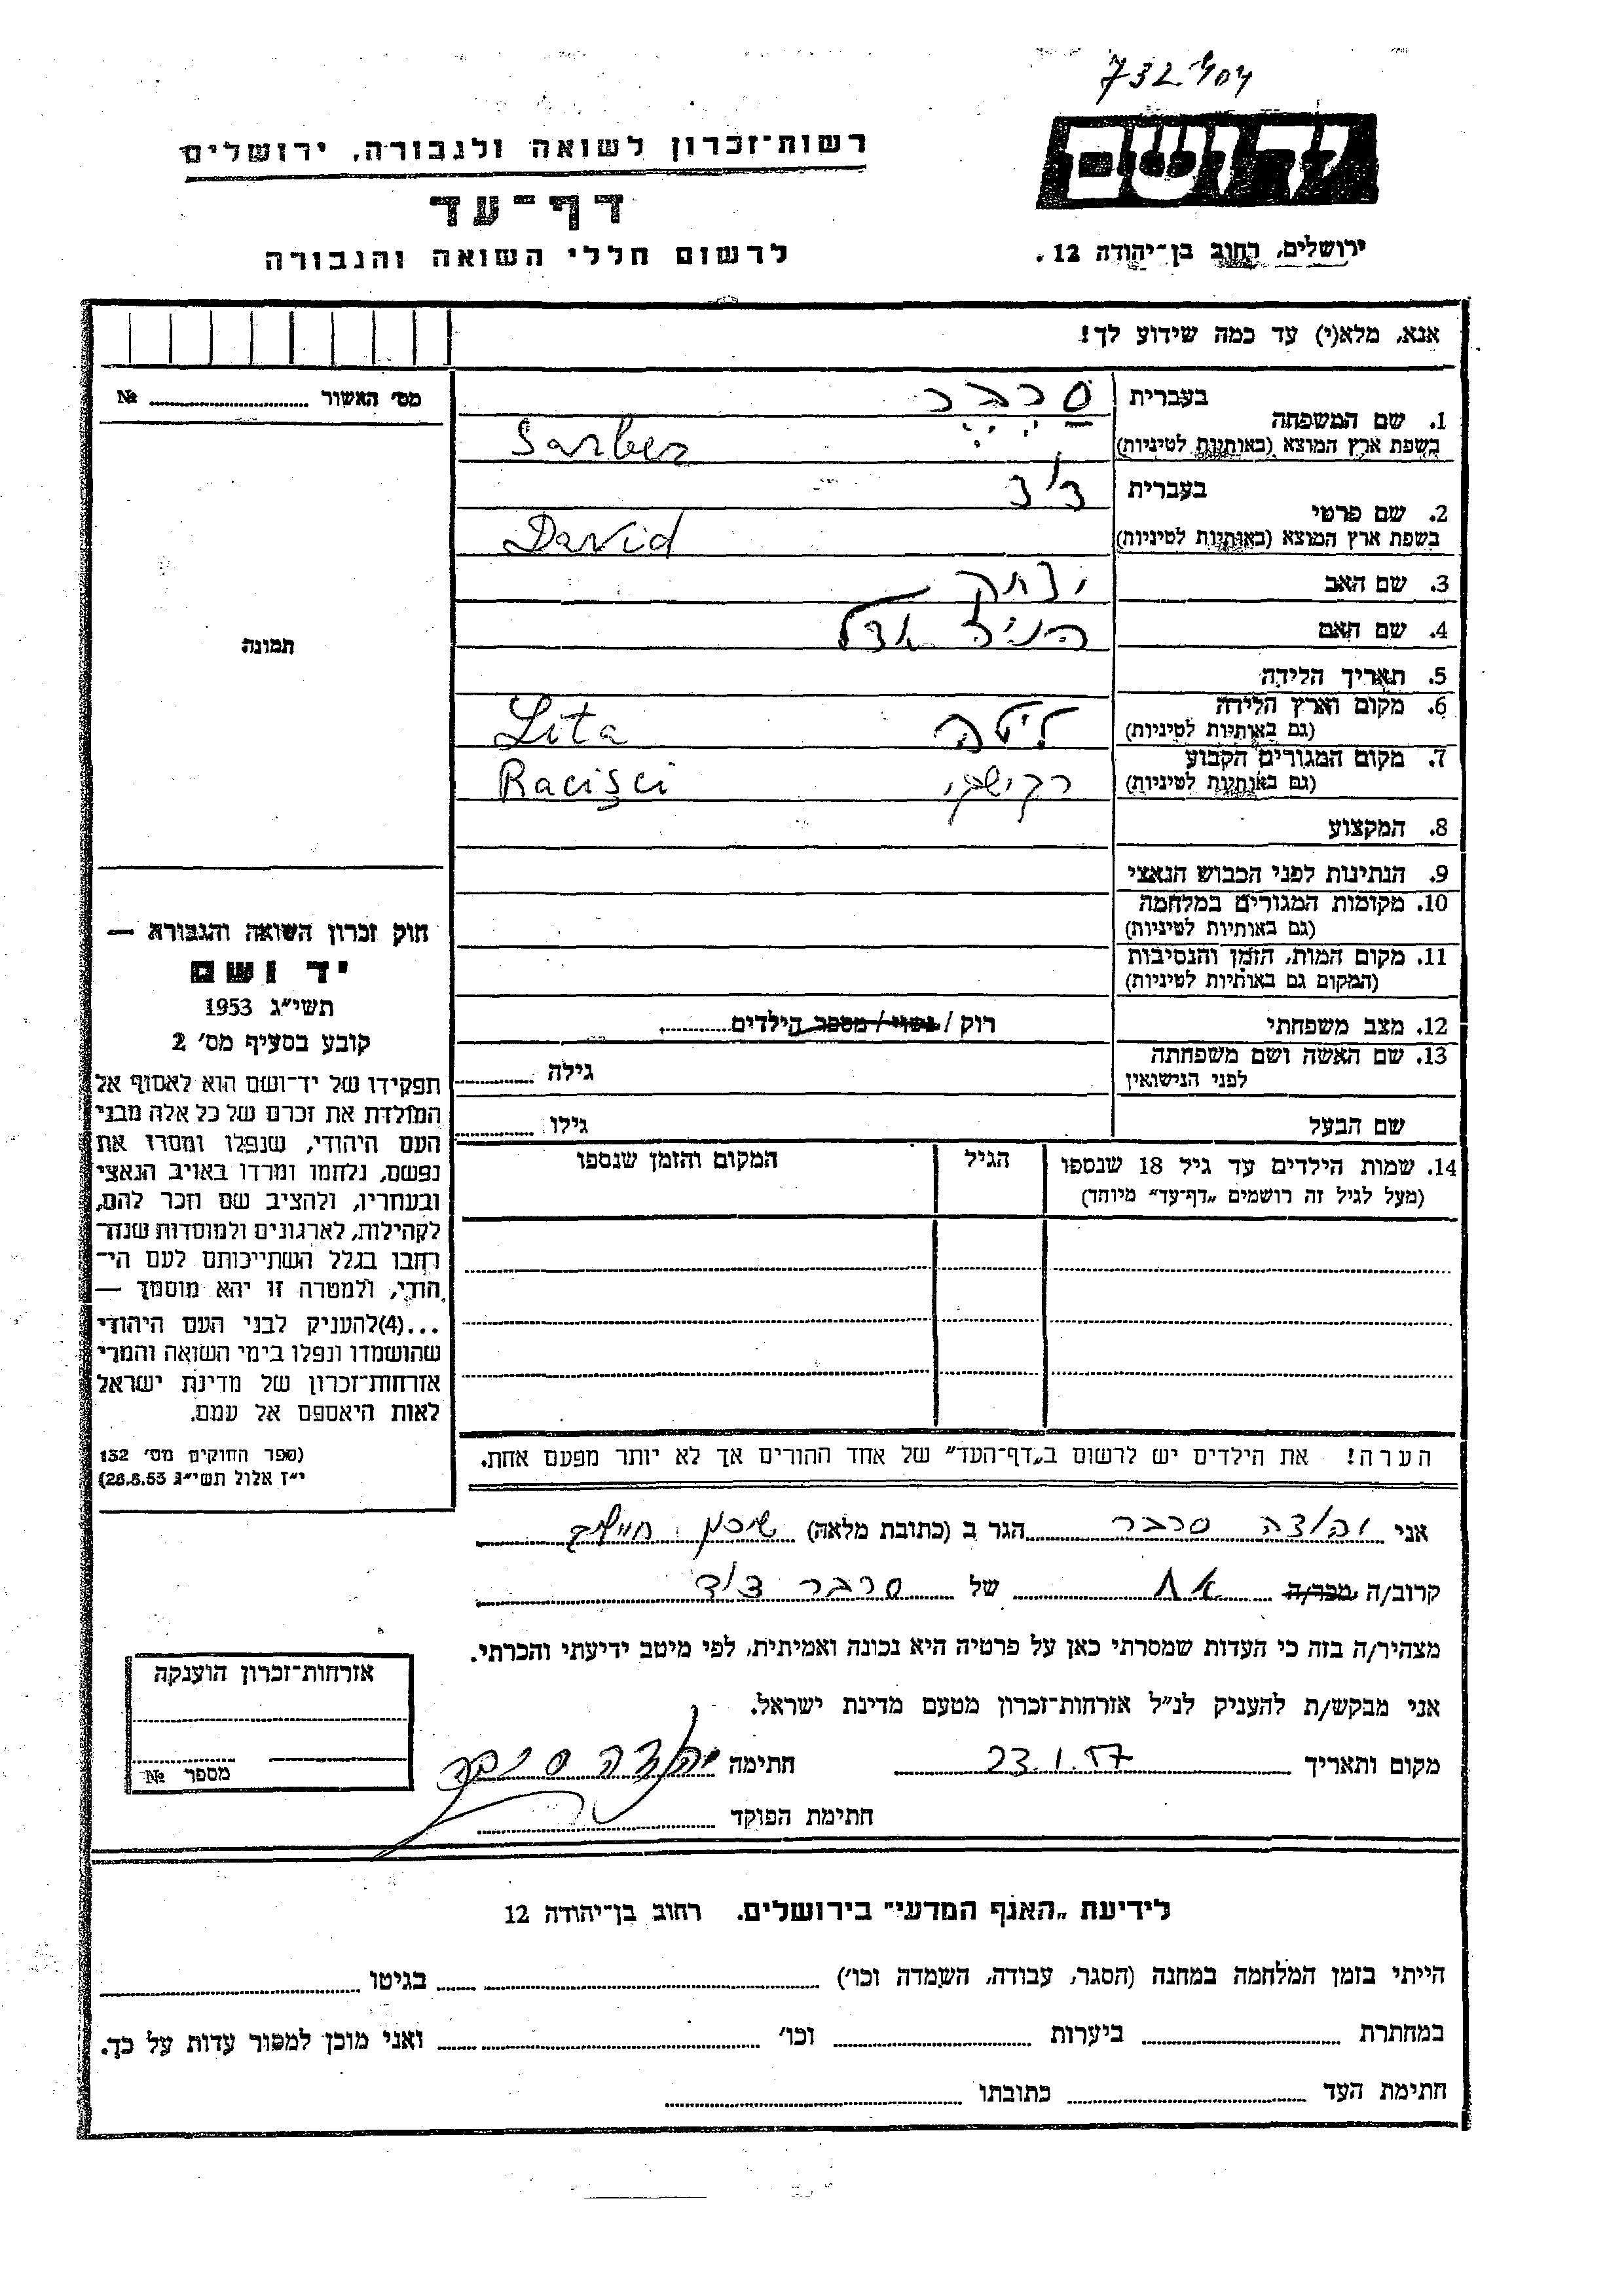 732404
יד ושם
רשות־זכרון לשואה ולגבורה, ירושלים
דף־עד
לרשום חללי השואה והגבורה
ירושלים, רחוב בן־יהודה 12.
אנא, מלא(י) עד כמה שידוע לך!
מס׳ האשור №
תמונה
1. שם המשפחה
בעברית סרבר
בשפת ארץ המוצא (באותיות לטיניות) Sarber
2. שם פרטי
בעברית דוד
בשפת ארץ המוצא (באותיות לטיניות) David
3. שם האב יצחק
4. שם האם
5. תאריך הלידה
6. מקום וארץ הלידה ליטה Lita
(גם באותיות לטיניות)
7. מקום המגורים הקבוע רקישקי Racişci
(גם באותיות לטיניות)
8. המקצוע
9. הנתינות לפני הכבוש הנאצי
10. מקומות המגורים במלחמה
(גם באותיות לטיניות)
11. מקום המות, הזמן והנסיבות
(המקום גם באותיות לטיניות)
12. מצב משפחתי רוק / נשוי / מספר הילדים
13. שם האשה ושם משפחתה
לפני הנישואין גילה
שם הבעל גילו
14. שמות הילדים עד גיל 18 שנספו הגיל המקום והזמן שנספו
(מעל לגיל זה רושמים „דף־עד” מיוחד)
חוק זכרון השואה והגבורה —
יד ושם
תשי״ג 1953
קובע בסעיף מס׳ 2
תפקידו של יד־ושם הוא לאסוף אל
המולדת את זכרם של כל אלה מבני
העם היהודי, שנפלו ומסרו את
נפשם, נלחמו ומרדו באויב הנאצי
ובעוזריו, ולהציב שם וזכר להם,
לקהילות, לארגונים ולמוסדות שנח־
רבו בגלל השתייכותם לעם הי־
הודי, ולמטרה זו יהא מוסמך —
...(4)להעניק לבני העם היהודי
שהושמדו ונפלו בימי השואה והמרי
אזרחות־זכרון של מדינת ישראל
לאות היאספם אל עמם.
(ספר החוקים מס׳ 132
י״ז אלול תשי״ג 28.8.53)
הערה! את הילדים יש לרשום ב„דף־העד” של אחד ההורים אך לא יותר מפעם אחת.
אני יהודה סרבר הגר ב (כתובת מלאה) שיכון
קרוב/ה מכר/ה אח של סרבר דוד
מצהיר/ה בזה כי העדות שמסרתי כאן על פרטיה היא נכונה ואמיתית, לפי מיטב ידיעתי והכרתי.
אני מבקש/ת להעניק לנ״ל אזרחות־זכרון מטעם מדינת ישראל.
מקום ותאריך 23.1.57 חתימה יהודה סרבר
חתימת הפוקד
אזרחות־זכרון הוענקה
מספר №
לידיעת „האגף המדעי” בירושלים. רחוב בן־יהודה 12
הייתי בזמן המלחמה במחנה (הסגר, עבודה, השמדה וכו׳) בגיטו
במחתרת ביערות וכו׳ ואני מוכן למסור עדות על כך.
חתימת העד כתובתו